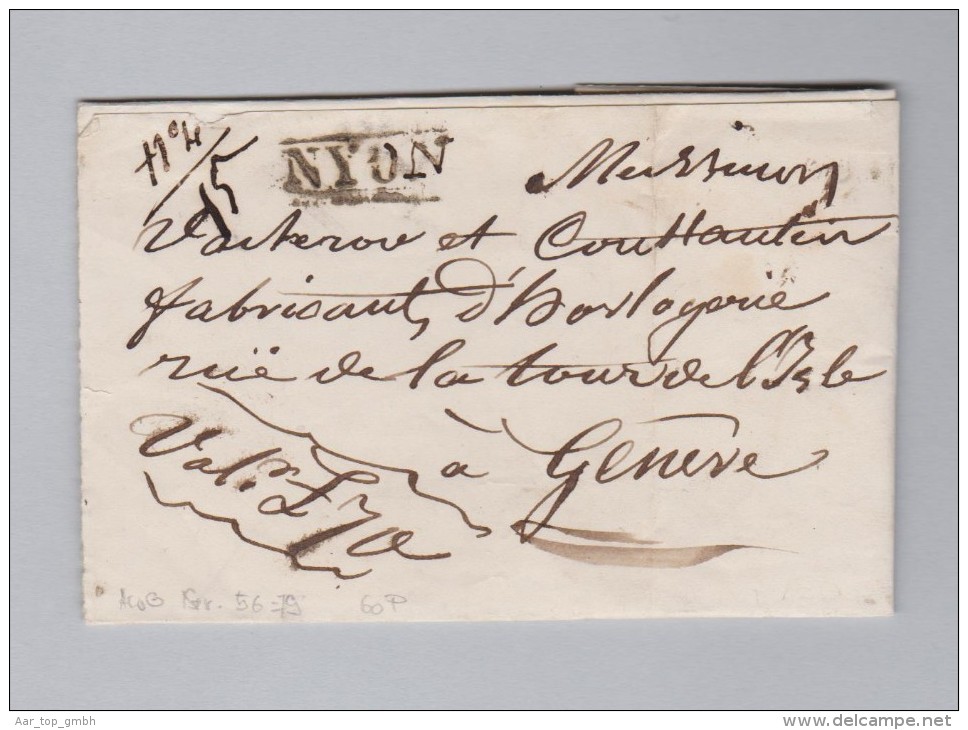 NYON
Messieurs
Vacheron et Constantin
fabricants d'horlogerie
rüe de la tour de l'Isle
à Genève
Val.r
56 60 P
Aar_top_gmbh
www.delcampe.net